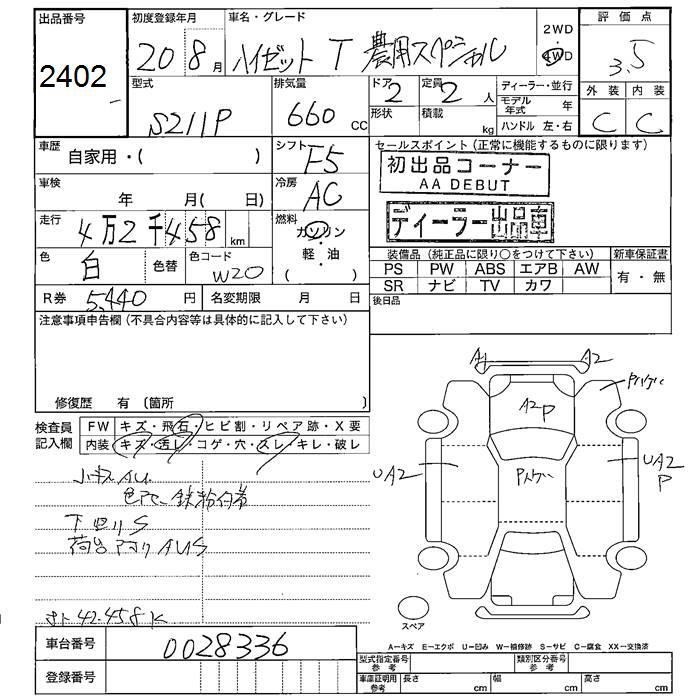 出品番号 初度登録年月 車名・グレード 2WD 評価点
2402 20 8月 ハイゼット T 農用スペシャル 4WD 3.5
外装 内装
C C
型式 排気量 ドア 定員 ディーラー・並行
S211P 660 CC 2 2 人 モデル年式 年
形状 積載 kg ハンドル 左・右
車歴 自家用・( ) シフト F5 セールスポイント (正常に機能するものに限ります)
初出品コーナー
AA DEBUT
車検 年 月( 日) 冷房 AC
ディーラー出品車
走行 4万2千458 km 燃料 ガソリン
軽・油
( )
色 白 色替 色コード W20
装備品 (純正品に限り○をつけて下さい) 新車保証書
PS PW ABS エアB AW 有・無
SR ナビ TV カワ
R券 5,440 円 名変期限 月 日 後日品
注意事項申告欄 (不具合内容等は具体的に記入して下さい)
修復歴 有 〔箇所 〕
検査員記入欄 FW キズ・飛石・ヒビ割・リペア跡・X要
内装 キズ・汚レ・コゲ・穴・スレ・キレ・破レ
A1 A2
A2
P
UA2
UA2
P
小キズAU
鉄粉付着
下回りS
荷台 AUS
42.458K
スペア
A-キズ E-エクボ U-凹み W-補修跡 S-サビ C-腐食 XX-交換済
車台番号 0028336
型式指定番号 参考 類別区分番号 参考
登録番号
車庫証明用 参考 長さ cm 幅 cm 高さ cm